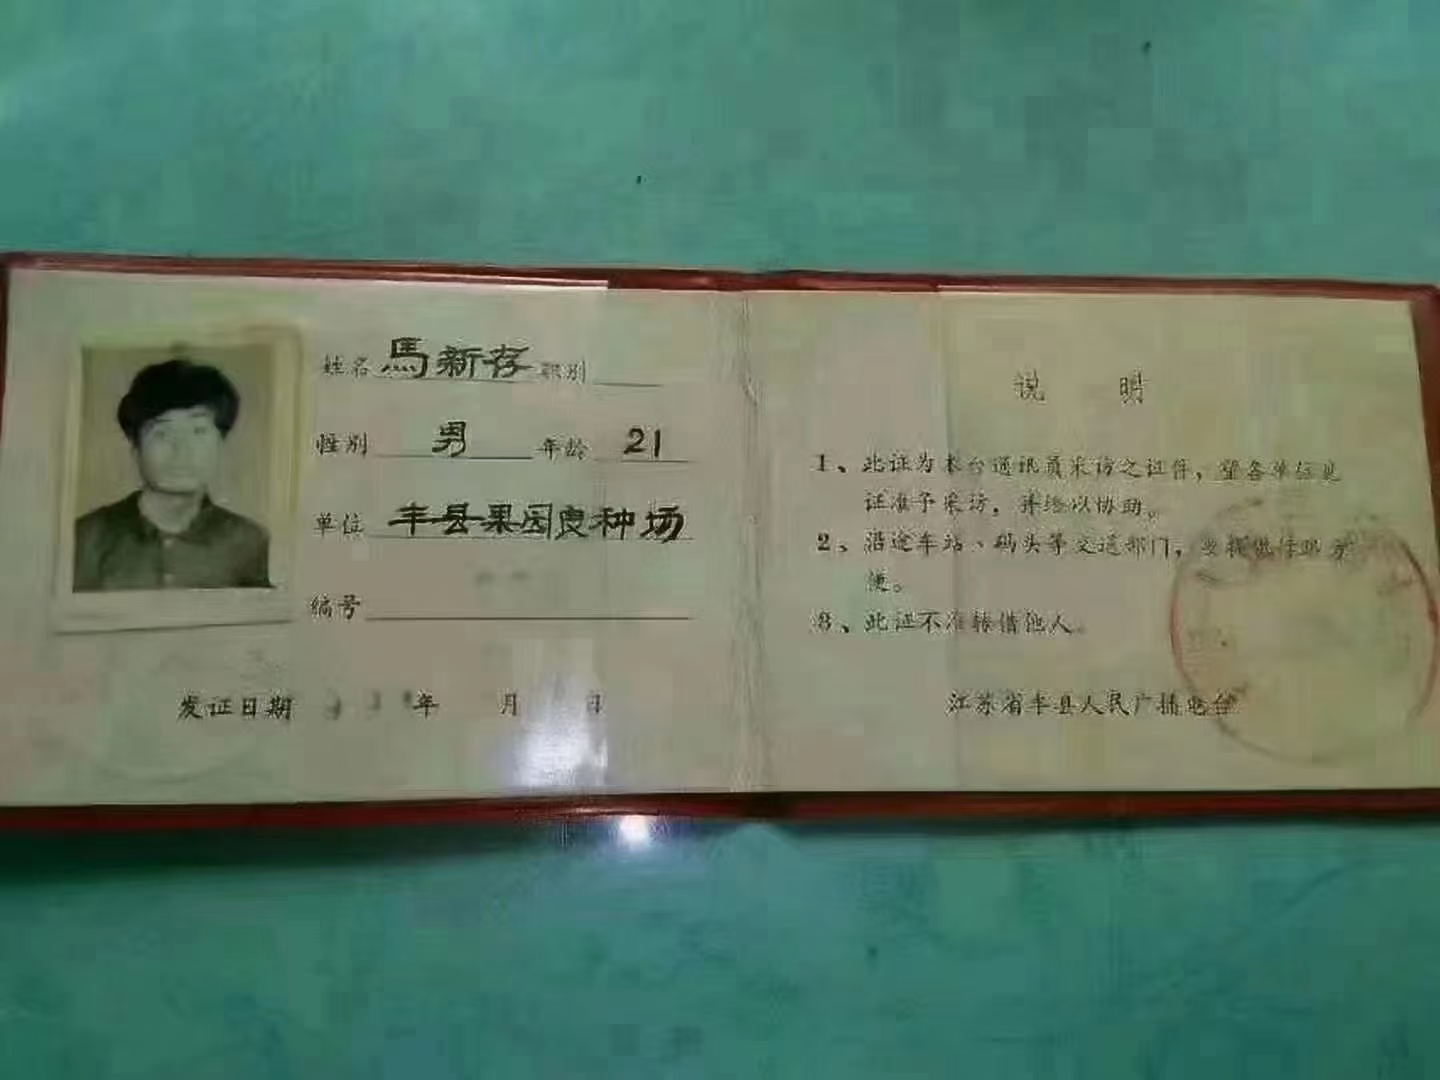 姓名 馬新存 职别
性别 男 年龄 21
单位 丰县果园良种场
编号
发证日期 年 月 日
说 明
1、此证为本台通讯员采访之证件，望各单位见
证准予采访，并给以协助。
2、沿途车站、码头等交通部门，要提供方
便。
3、此证不准转借他人。
江苏省丰县人民广播电台